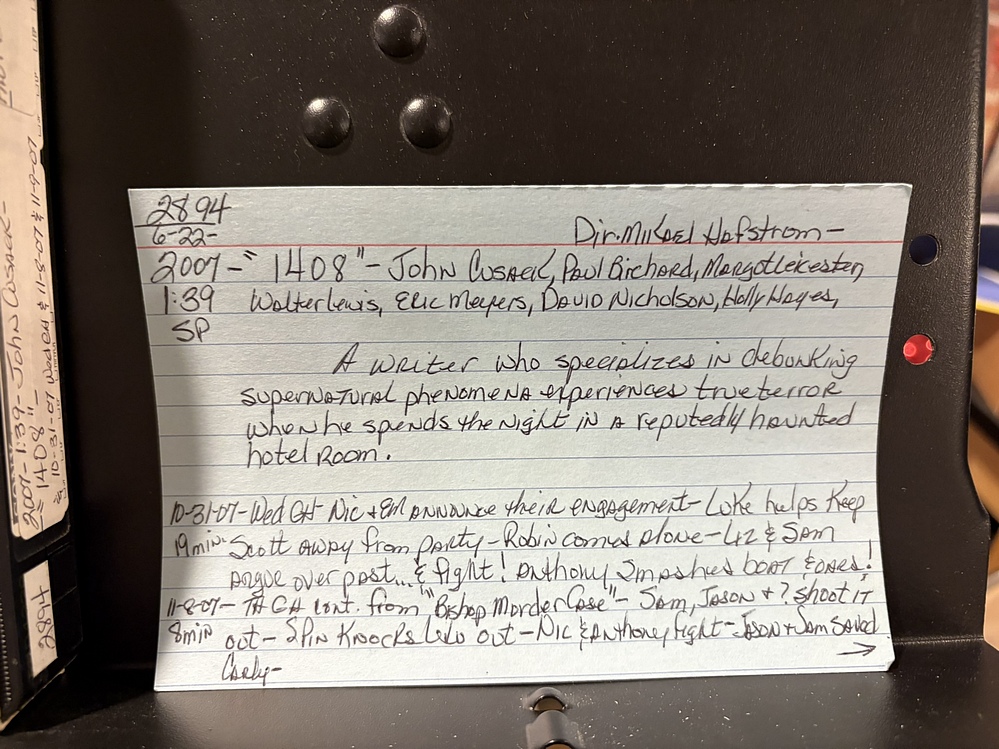 2894
6-22-
Dir. Mikael Hafstrom-
2007-"1408"- John Cusack, Paul Birchard, Margot Leicester,
1:39 Walter Lewis, Eric Meyers, David Nicholson, Holly Hayes,
SP
A writer who specializes in debunking
supernatural phenomena experiences true terror
when he spends the night in a reputedly haunted
hotel room.
10-31-07-Wed GH- Nic + EM announce their engagement- Luke helps keep
19min- Scott away from party- Robin comes alone- Liz & Sam
argue over past...& fight! Anthony smashes boat & oars!
11-8-07- TH GH cont. from "Bishop Morder Case"- Sam, Jason + ? shoot it
8min out- Spin knocks Lulu out- Nic & Anthony fight- Jason + Sam saved
Carly-
→
2007-1:39-John Cusack-
"1408"-
10-31-07 Wed GH & 11-8-07 & 11-9-07
2894